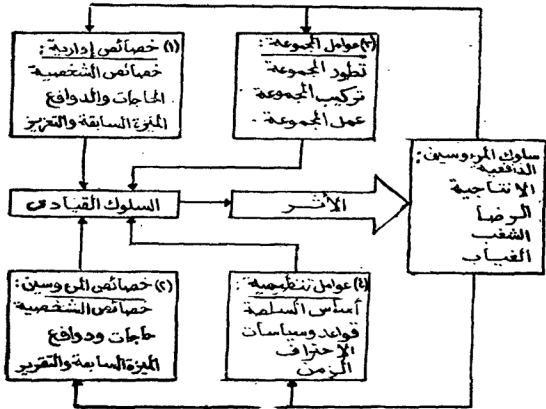 (١) خصائص إدارية :
خصائص الشخصية
الحاجات والدوافع
الميزة السابقة والتعزيز
(٣) عوامل المجموعة :
تطور المجموعة
تركيب المجموعة
عمل المجموعة .
سلوك المرءوسين :
الدافعية
الانتاجية
الرضا
الشغب
الغياب
السلوك القيادى
الأثر
(٢) خصائص المرءوسين :
خصائص الشخصية
حاجات ودوافع
الميزة السابقة والتقرير
(٤) عوامل تنظيمية :
أساس السلطة
قواعد وسياسات
الاحتراف
الزمن